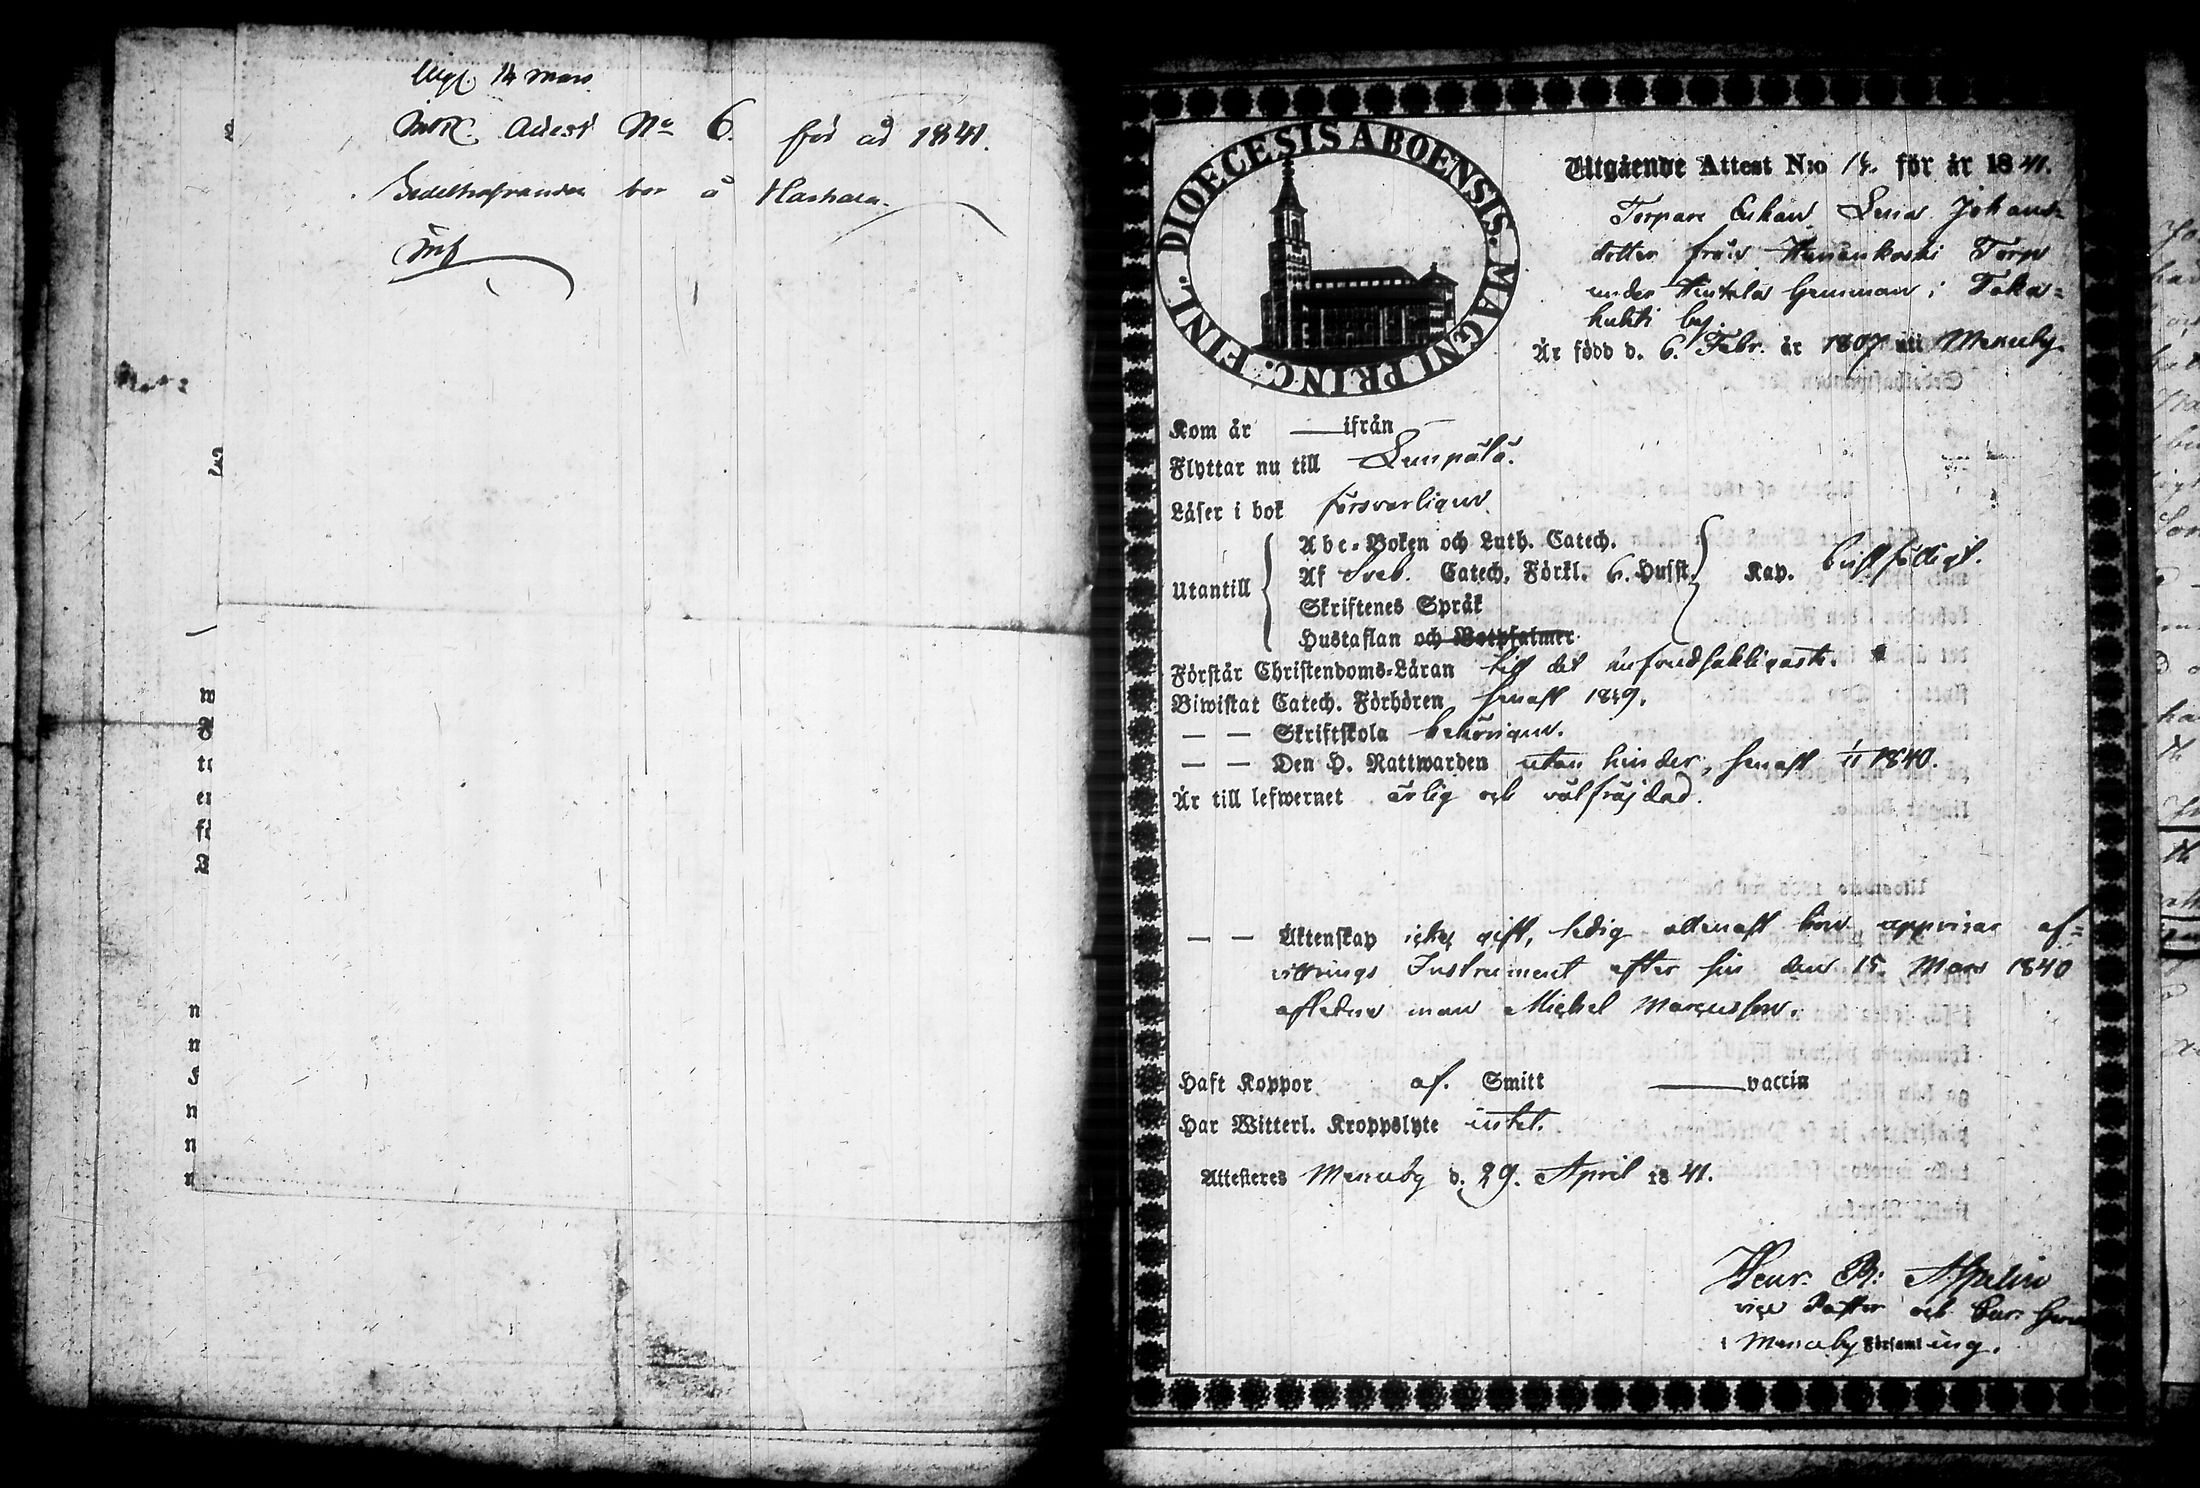 14 mars
Attest No 6. för år 1841.
Sedelhafvanden bor å
DIOECESIS ABOENSIS. MAGNI PRINC. FINL.
Utgående Attest N:o 14. för år 1841.
Torpare Enkan Lena Johans-
dotter från Torp
under Hemman i
by.
Är född d. 6. Febr. år 1807 uti Messuby.
Kom år — ifrån —
Flyttar nu till Lempälä.
Läser i bok försvarligen.
Utantill
Abc-Boken och Luth. Catech.
Af Sveb. Catech. Förkl. 6. Hufst. Kap.
Skriftenes Språk
Hustaflan och Botpsalmer
Förstår Christendoms-Läran till det
Biwistat Catech. Förhören senast
— — Skriftskola behörigen.
— — Den H. Nattwarden utan hinder, senast 1/11 1840.
Är till lefwernet ärlig och välfräjdad.
— — Äktenskap icke gift, ledig allenast hon uppvisar af-
vittrings Instrument efter sin den 15. Mars 1840
aflidne man Michel Marcusson.
Haft Koppor af. Smitt — vaccin
Har Witterl. Kroppslyte intet.
Attesteres Messuby d. 29. April 1841.
Henr. Aspelin
vice Pastor och
i Messuby Församling.